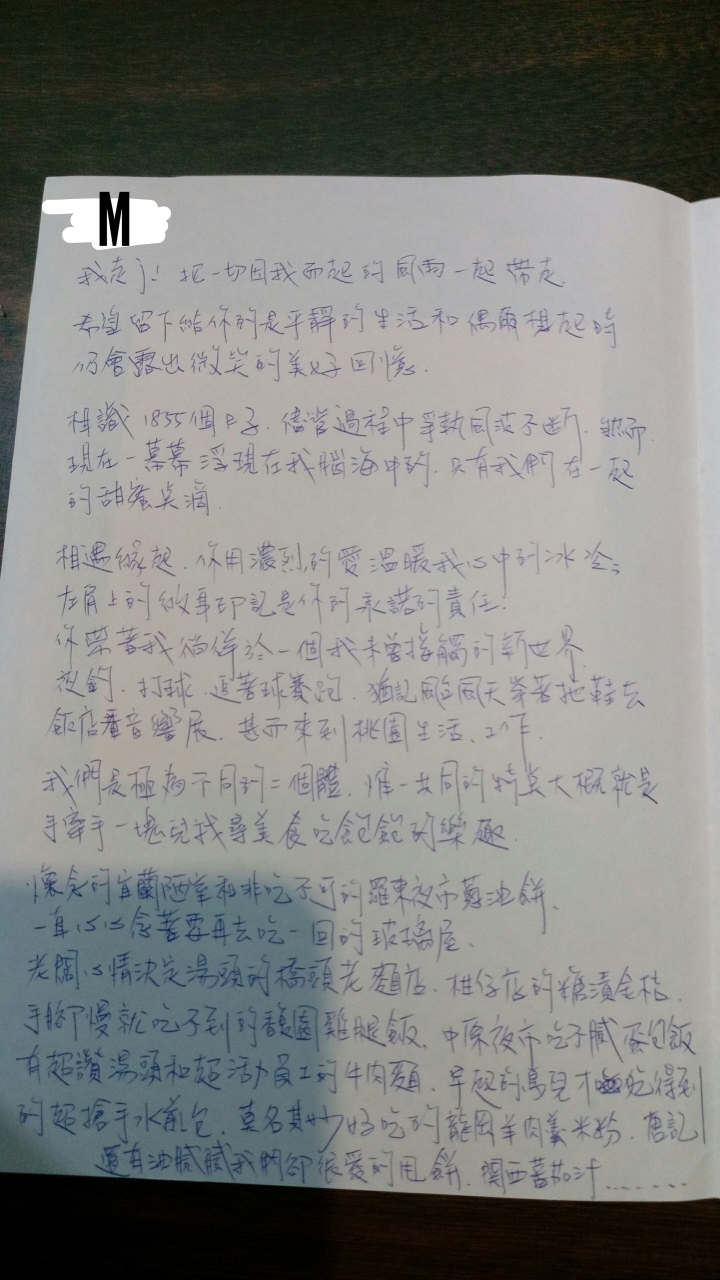 M
我走了! 把一切因我而起的風雨一起帶走
希望留下給你的是平靜的生活和偶爾想起時
仍會露出微笑的美好回憶.
相識 1855個日子. 儘管過程中爭執風波不斷. 然而
現在一幕幕浮現在我腦海中的. 只有我們在一起
的甜蜜點滴.
相遇緣起. 你用濃烈的愛溫暖我心中的冰冷;
左肩上的故事印記是你的承諾的責任.
你帶著我徜徉於一個我未曾接觸的新世界
夜釣. 打球. 追著球賽跑. 猶記颱風天穿著拖鞋去
飯店看音響展. 甚而來到桃園生活、工作.
我們是極為不同的二個體. 惟一共同的特點大概就是
手牽手一塊兒找尋美食吃飽飽的樂趣.
懷念的宜蘭陋室和非吃不可的羅東夜市蔥油餅.
一直心心念著要再去吃一回的玻璃屋.
老闆心情決定湯頭的橋頭老麵店. 柑仔店的糖漬金桔.
手腳慢就吃不到的馥園雞腿飯. 中原夜市吃不膩蛋包飯
有超讚湯頭和超活力員工的牛肉麵. 早起的鳥兒才吃得到
的超搶手水煎包. 莫名其妙好吃的龍岡羊肉羹米粉. 唐記
還有油膩膩我們卻很愛的甩餅. 關西蕃茄汁......